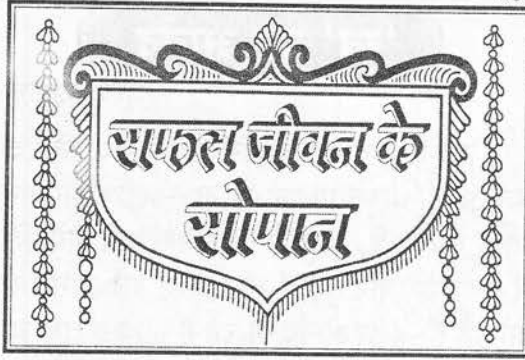 सफल जीवन के
सोपान